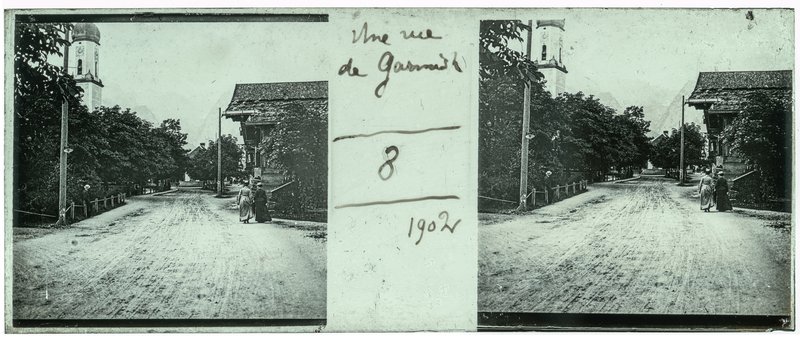 Une rue
de Garmisch
8
1902